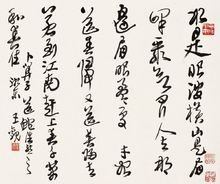 水是眼波横山是眉
峰聚欲问行人去那
邊眉眼盈盈處才始
送春歸又送君歸去
若到江南趕上春千萬
和春住
卜算子送鮑浩然之
浙東王觀